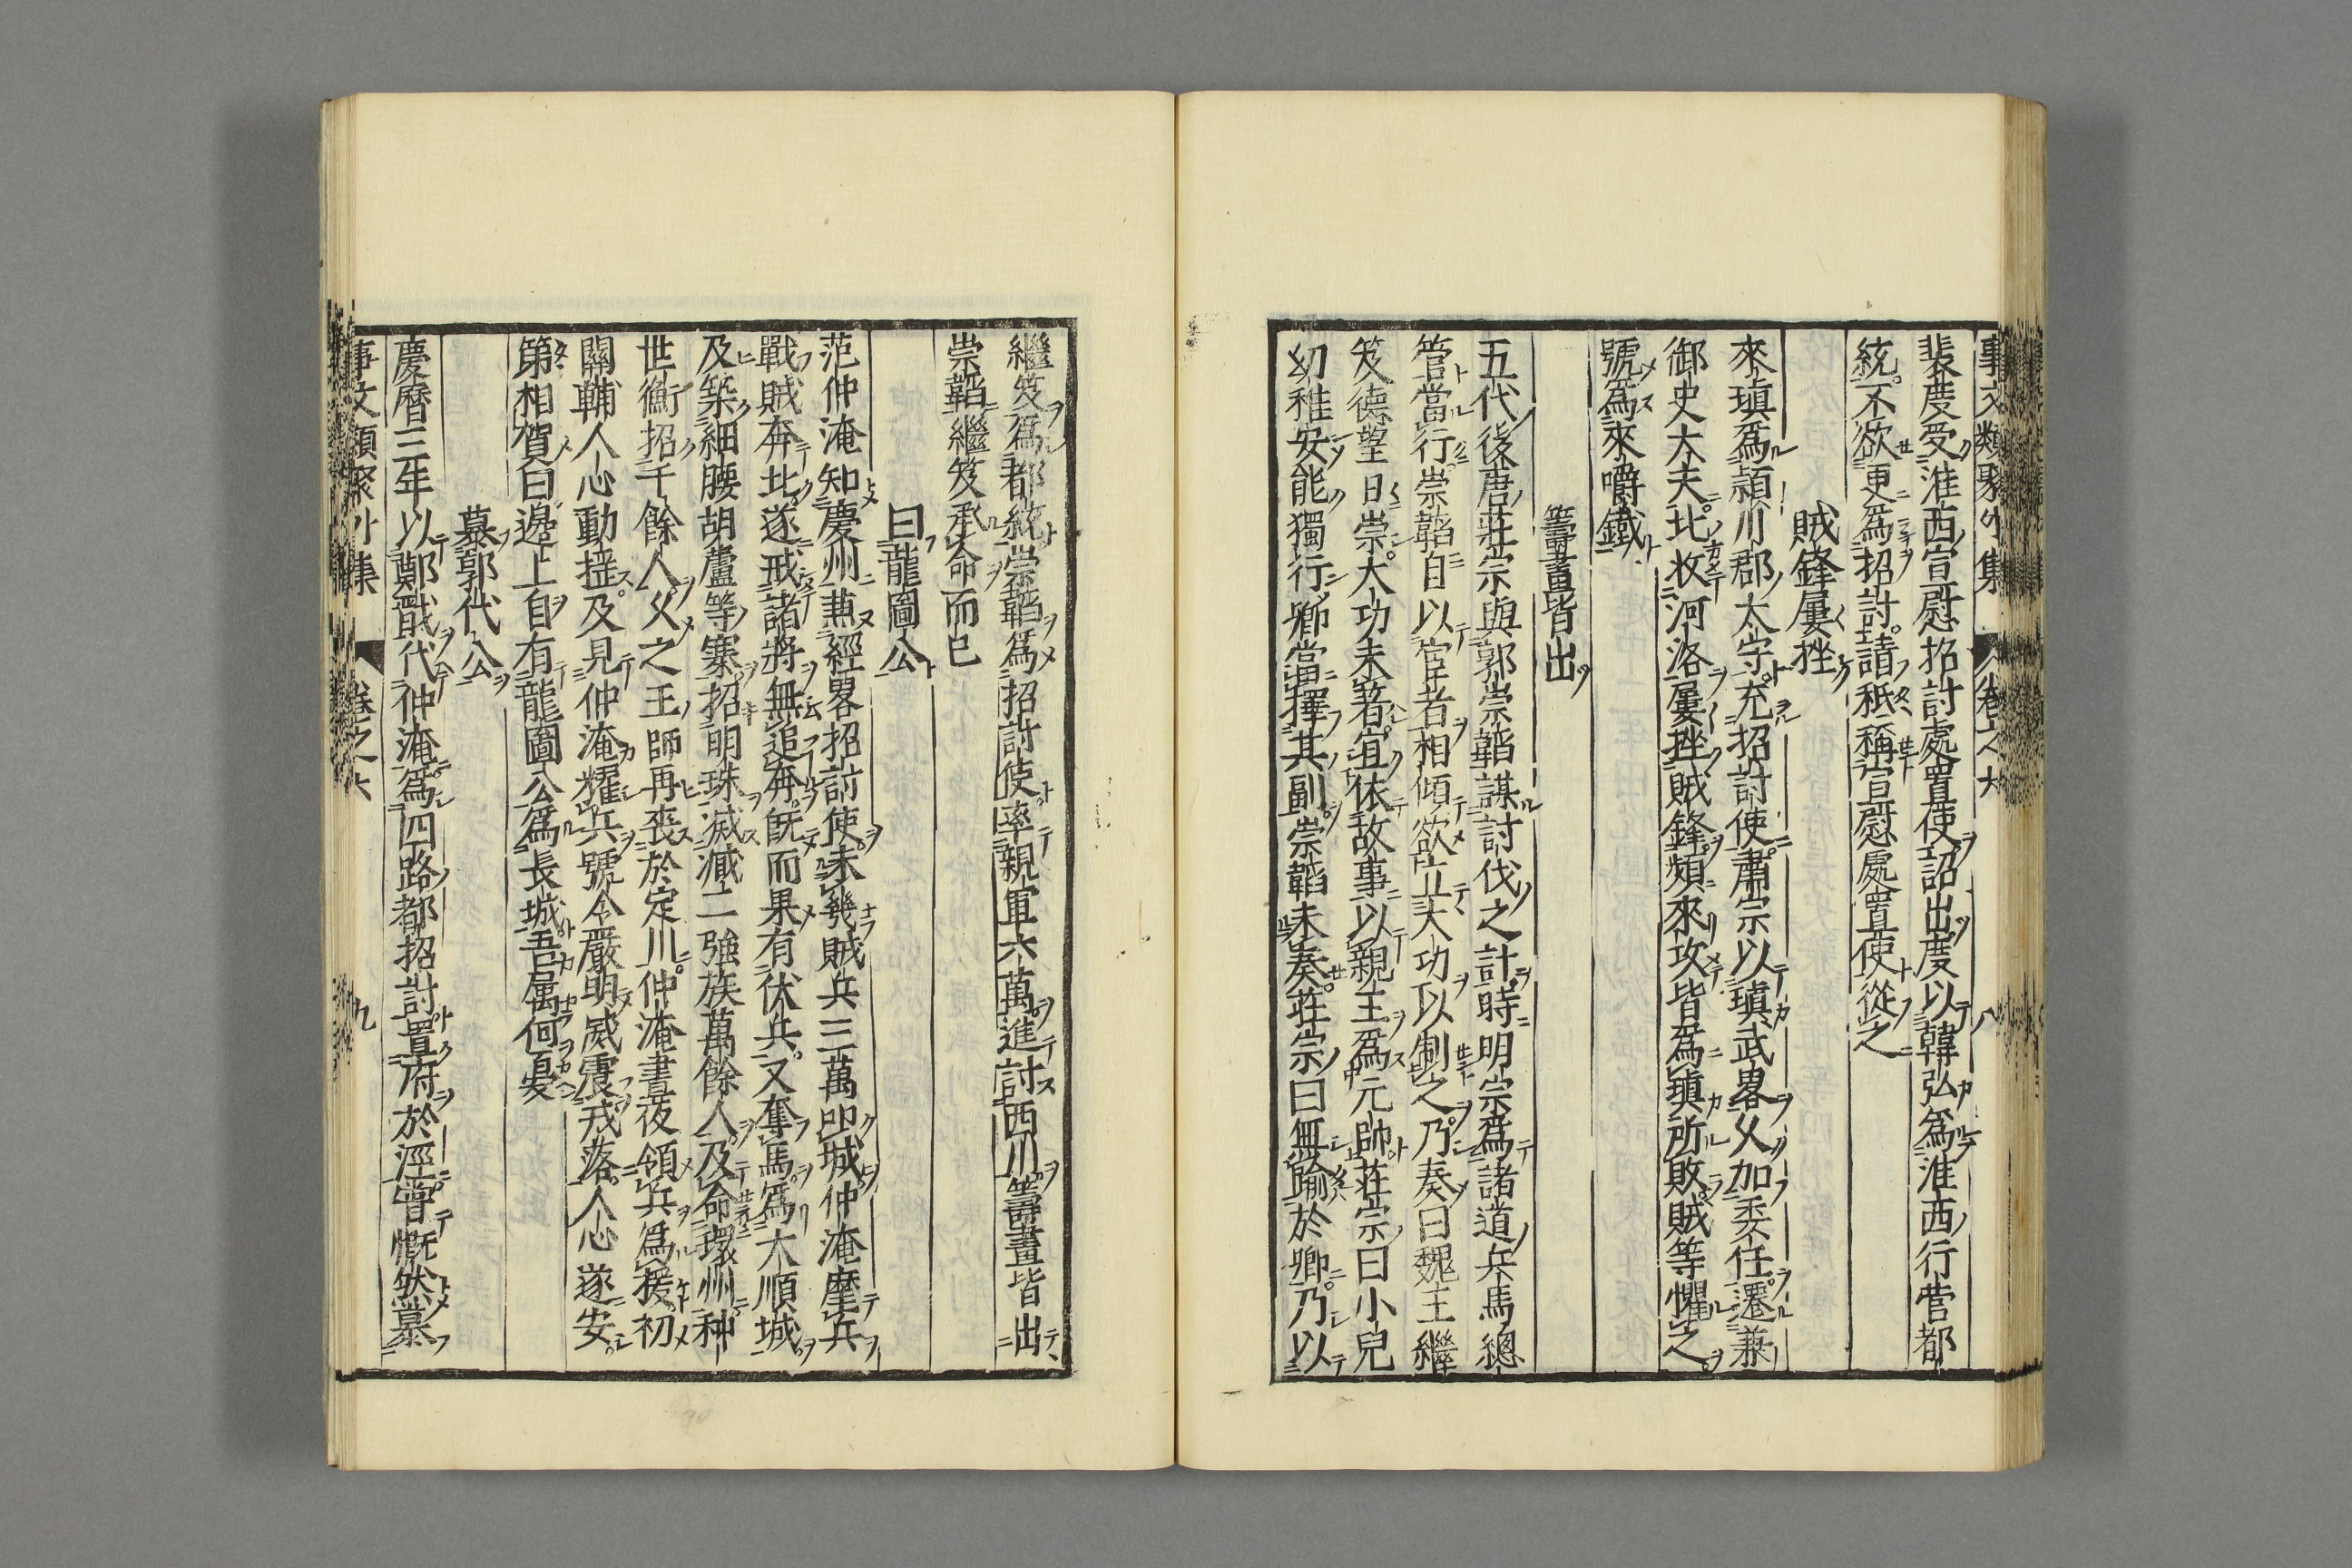 事文類聚外集 卷之六 八
裴度受淮西宣慰招討處置使詔出度以韓弘為淮西行營都
統不欲更為招討請秖稱宣慰處置使從之
賊鋒屢挫
來瑱為潁川郡太守充招討使肅宗以瑱武畧乂加委任遷兼
御史大夫北收河洛屢挫賊鋒頻來攻皆為瑱所敗賊等懼之
號為來嚼鐵
籌畫皆出
五代後唐莊宗與郭崇韜謀討伐之計時明宗為諸道兵馬總
管當行崇韜自以宦者相傾欲立大功以制之乃奏曰魏王繼
笈德望日崇大功未著宜依故事以親王為元帥莊宗曰小兒
幼稚安能獨行卿當擇其副崇韜未奏莊宗曰無踰於卿乃以
繼笈為都統崇韜為招討使率親軍六萬進討西川籌畫皆出
崇韜繼笈承命而已
曰龍圖公
范仲淹知慶州兼經畧招討使未幾賊兵三萬叩城仲淹麾兵
戰賊奔北遂戒諸將無追奔既而果有伏兵又奪馬為大順城
及築細腰胡蘆等寨招明珠滅臧二強族萬餘人及命環州种
世衡招千餘人乂之王師再喪於定川仲淹晝夜領兵為援初
關輔人心動搖及見仲淹耀兵號令嚴明威震戎落人心遂安
第相賀曰邊上自有龍圖公為長城吾属何憂
慕郭代公
慶曆三年以鄭戩代仲淹為四路都招討置府於涇嘗慨然慕
事文類聚外集 卷之六 九